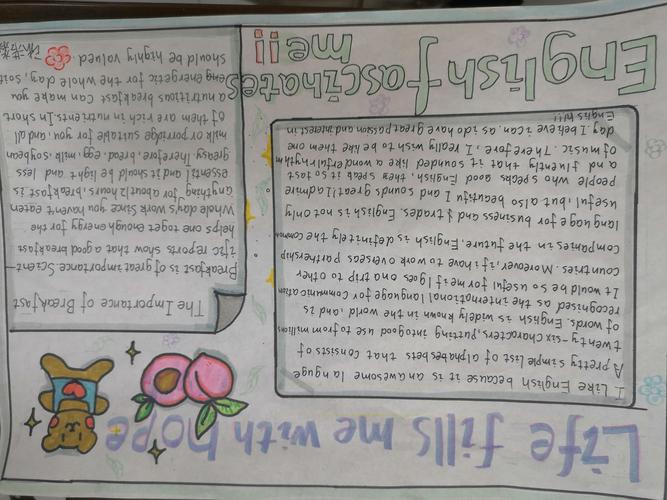 Life fills me with hope
I Like English because it is an awesome languge
A pretty simple list of alphabets that consists of
twenty-six characters, putting in to good use to from millions
of words. English is widely known in the world, and is
recognised as the international language for Communication
It would be so useful for me if I goes on a trip to other
countries. Moreover, if i have to work overseas partnership
Companies in the future, English is definitely the common
language for business and f trades. English is not only
useful, but also beautiful and sounds great! I admire
people who specks good English, they speck it so fast
and fluently that it sounded like a wonderful rhythm
of music. Therefore, I really wish to be like them one
day. I believe i can, as i do have great passon and interest in
English!!!
English fascihates
me!!
The Importance of Breakfast
Breakfast is of great importance Scient-
ific reports show that a good breakfast
helps one to get enough energy for the
Whole day's work since you haven't eaten
anything for about 12 hours, breakfast is
essenti and it should be light and less
greasy Therefore, bread, egg, milk, soybean
milk or porridge suitable for you, and all
of them are rich in nutrients In short
a nutritious breakfast can make you
eng energetic for the whole day, so it
should be highly valued.